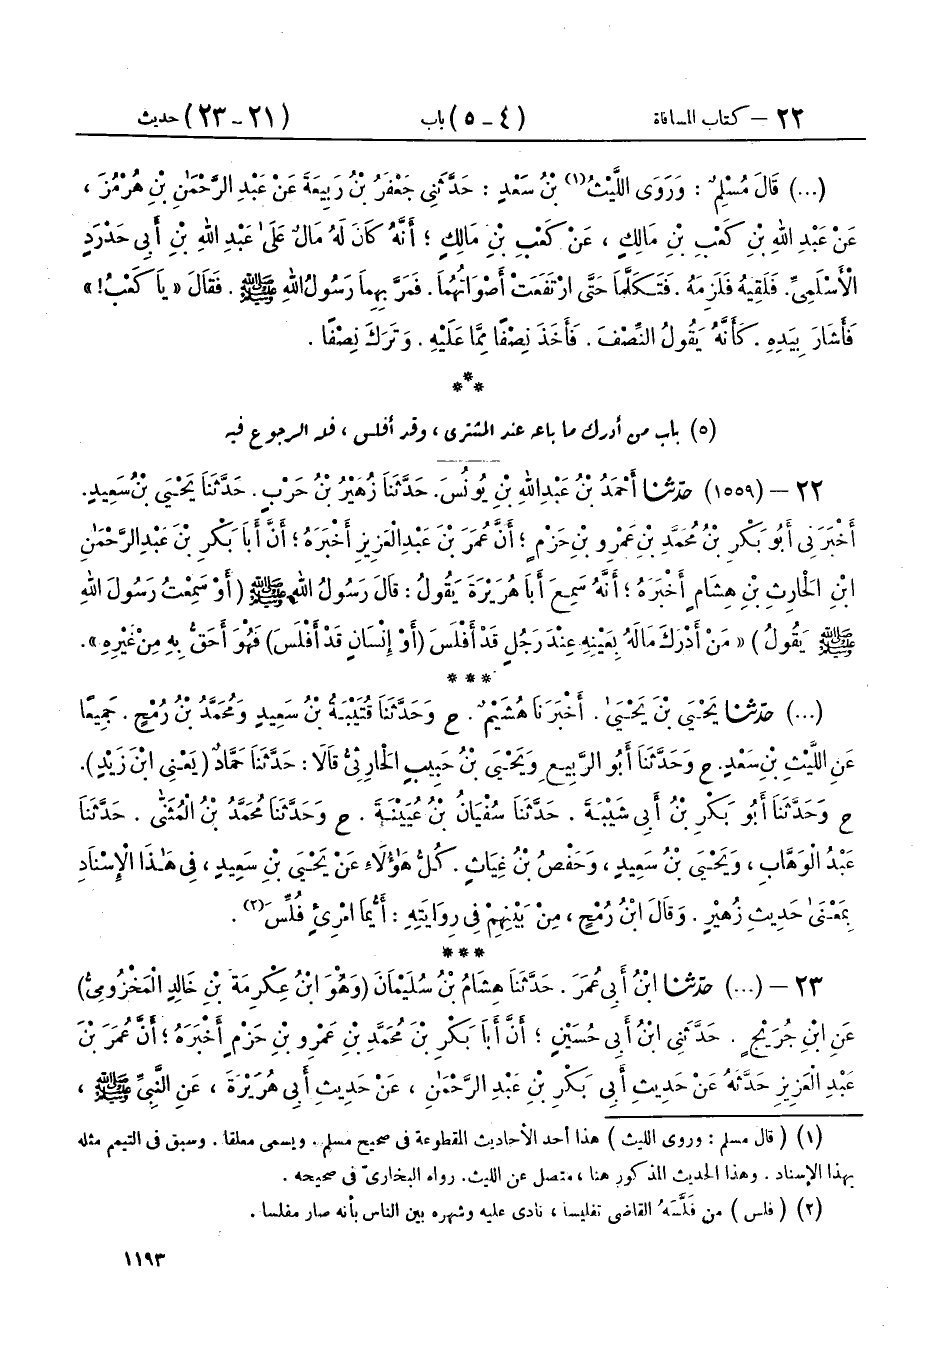 ٢٢ – كتاب المساقاة (٤ – ٥) باب (٢١ – ٢٣) حديث
(...) قَالَ مُسْلِمٌ : وَرَوَى اللَّيْثُ(١) بْنُ سَعْدٍ : حَدَّثَنِي جَعْفَرُ بْنُ رَبِيعَةَ عَنْ عَبْدِ الرَّحْمَٰنِ بْنِ هُرْمُزَ ،
عَنْ عَبْدِ اللهِ بْنِ كَعْبِ بْنِ مَالِكٍ ، عَنْ كَعْبِ بْنِ مَالِكٍ ؛ أَنَّهُ كَانَ لَهُ مَالٌ عَلَىٰ عَبْدِ اللهِ بْنِ أَبِي حَدْرَدٍ
الْأَسْلَمِيِّ. فَلَقِيَهُ فَلَزِمَهُ . فَتَكَلَّمَا حَتَّى ارْتَفَعَتْ أَصْوَاتُهُمَا. فَمَرَّ بِهِمَا رَسُولُ اللهِ ﷺ . فَقَالَ « يَا كَعْبُ! »
فَأَشَارَ بِيَدِهِ . كَأَنَّهُ يَقُولُ النِّصْفَ . فَأَخَذَ نِصْفًا مِمَّا عَلَيْهِ . وَتَرَكَ نِصْفًا .
***
(٥) باب من أدرك ما باعه عند المشترى ، وقد أفلس ، فله الرجوع فيه
٢٢ – (١٥٥٩) حَدَّثَنَا أَحْمَدُ بْنُ عَبْدِ اللهِ بْنِ يُونُسَ. حَدَّثَنَا زُهَيْرُ بْنُ حَرْبٍ. حَدَّثَنَا يَحْيَىٰ بْنُ سَعِيدٍ.
أَخْبَرَنِي أَبُو بَكْرِ بْنُ مُحَمَّدِ بْنِ عَمْرِو بْنِ حَزْمٍ ؛ أَنَّ عُمَرَ بْنَ عَبْدِ الْعَزِيزِ أَخْبَرَهُ ؛ أَنَّ أَبَا بَكْرِ بْنَ عَبْدِ الرَّحْمَٰنِ
ابْنِ الْحَارِثِ بْنِ هِشَامٍ أَخْبَرَهُ ؛ أَنَّهُ سَمِعَ أَبَا هُرَيْرَةَ يَقُولُ : قَالَ رَسُولُ اللهِ ﷺ ( أَوْ سَمِعْتُ رَسُولَ اللهِ
ﷺ يَقُولُ ) « مَنْ أَدْرَكَ مَالَهُ بِعَيْنِهِ عِنْدَ رَجُلٍ قَدْ أَفْلَسَ (أَوْ إِنْسَانٍ قَدْ أَفْلَسَ) فَهُوَ أَحَقُّ بِهِ مِنْ غَيْرِهِ ».
***
(...) حَدَّثَنَا يَحْيَىٰ بْنَ يَحْيَىٰ. أَخْبَرَنَا هُشَيْمٌ . ح وَحَدَّثَنَا قُتَيْبَةُ بْنُ سَعِيدٍ وَمُحَمَّدُ بْنُ رُمْحٍ . جَمِيعًا
عَنِ اللَّيْثِ بْنِ سَعْدٍ. ح وَحَدَّثَنَا أَبُو الرَّبِيعِ وَيَحْيَىٰ بْنُ حَبِيبٍ الْحَارِثِيُّ قَالَا : حَدَّثَنَا حَمَّادٌ (يَعْنِي ابْنَ زَيْدٍ).
ح وَحَدَّثَنَا أَبُو بَكْرِ بْنُ أَبِي شَيْبَةَ . حَدَّثَنَا سُفْيَانُ بْنُ عُيَيْنَةَ . ح وَحَدَّثَنَا مُحَمَّدُ بْنُ الْمُثَنَّى . حَدَّثَنَا
عَبْدُ الْوَهَّابِ ، وَيَحْيَىٰ بْنُ سَعِيدٍ ، وَحَفْصُ بْنُ غِيَاثٍ . كُلُّ هَٰؤُلَاءِ عَنْ يَحْيَىٰ بْنِ سَعِيدٍ ، فِي هَٰذَا الْإِسْنَادِ
بِمَعْنَىٰ حَدِيثِ زُهَيْرٍ . وَقَالَ ابْنُ رُمْحٍ ، مِنْ بَيْنِهِمْ فِي رِوَايَتِهِ : أَيُّمَا امْرِئٍ فُلِّسَ(٢) .
***
٢٣ – (...) حَدَّثَنَا ابْنُ أَبِي عُمَرَ . حَدَّثَنَا هِشَامُ بْنُ سُلَيْمَانَ (وَهُوَ ابْنُ عِكْرِمَةَ بْنِ خَالِدٍ الْمَخْزُومِيُّ)
عَنِ ابْنِ جُرَيْجٍ . حَدَّثَنِي ابْنُ أَبِي حُسَيْنٍ ؛ أَنَّ أَبَا بَكْرِ بْنَ مُحَمَّدِ بْنِ عَمْرِو بْنِ حَزْمٍ أَخْبَرَهُ ؛ أَنَّ عُمَرَ بْنَ
عَبْدِ الْعَزِيزِ حَدَّثَهُ عَنْ حَدِيثِ أَبِي بَكْرِ بْنِ عَبْدِ الرَّحْمَٰنِ ، عَنْ حَدِيثِ أَبِي هُرَيْرَةَ ، عَنِ النَّبِيِّ ﷺ ،
(١) ( قال مسلم : وروى الليث ) هذا أحد الأحاديث المقطوعة فى صحيح مسلم . ويسمى معلقا . وسبق فى التيمم مثله
بهذا الإسناد . وهذا الحديث المذكور هنا ، متصل عن الليث. رواه البخارىّ فى صحيحه .
(٢) ( فلس ) من فَلَّسَهُ القاضى تفليسا ، نادى عليه وشهره بين الناس بأنه صار مفلسا .
١١٩٣